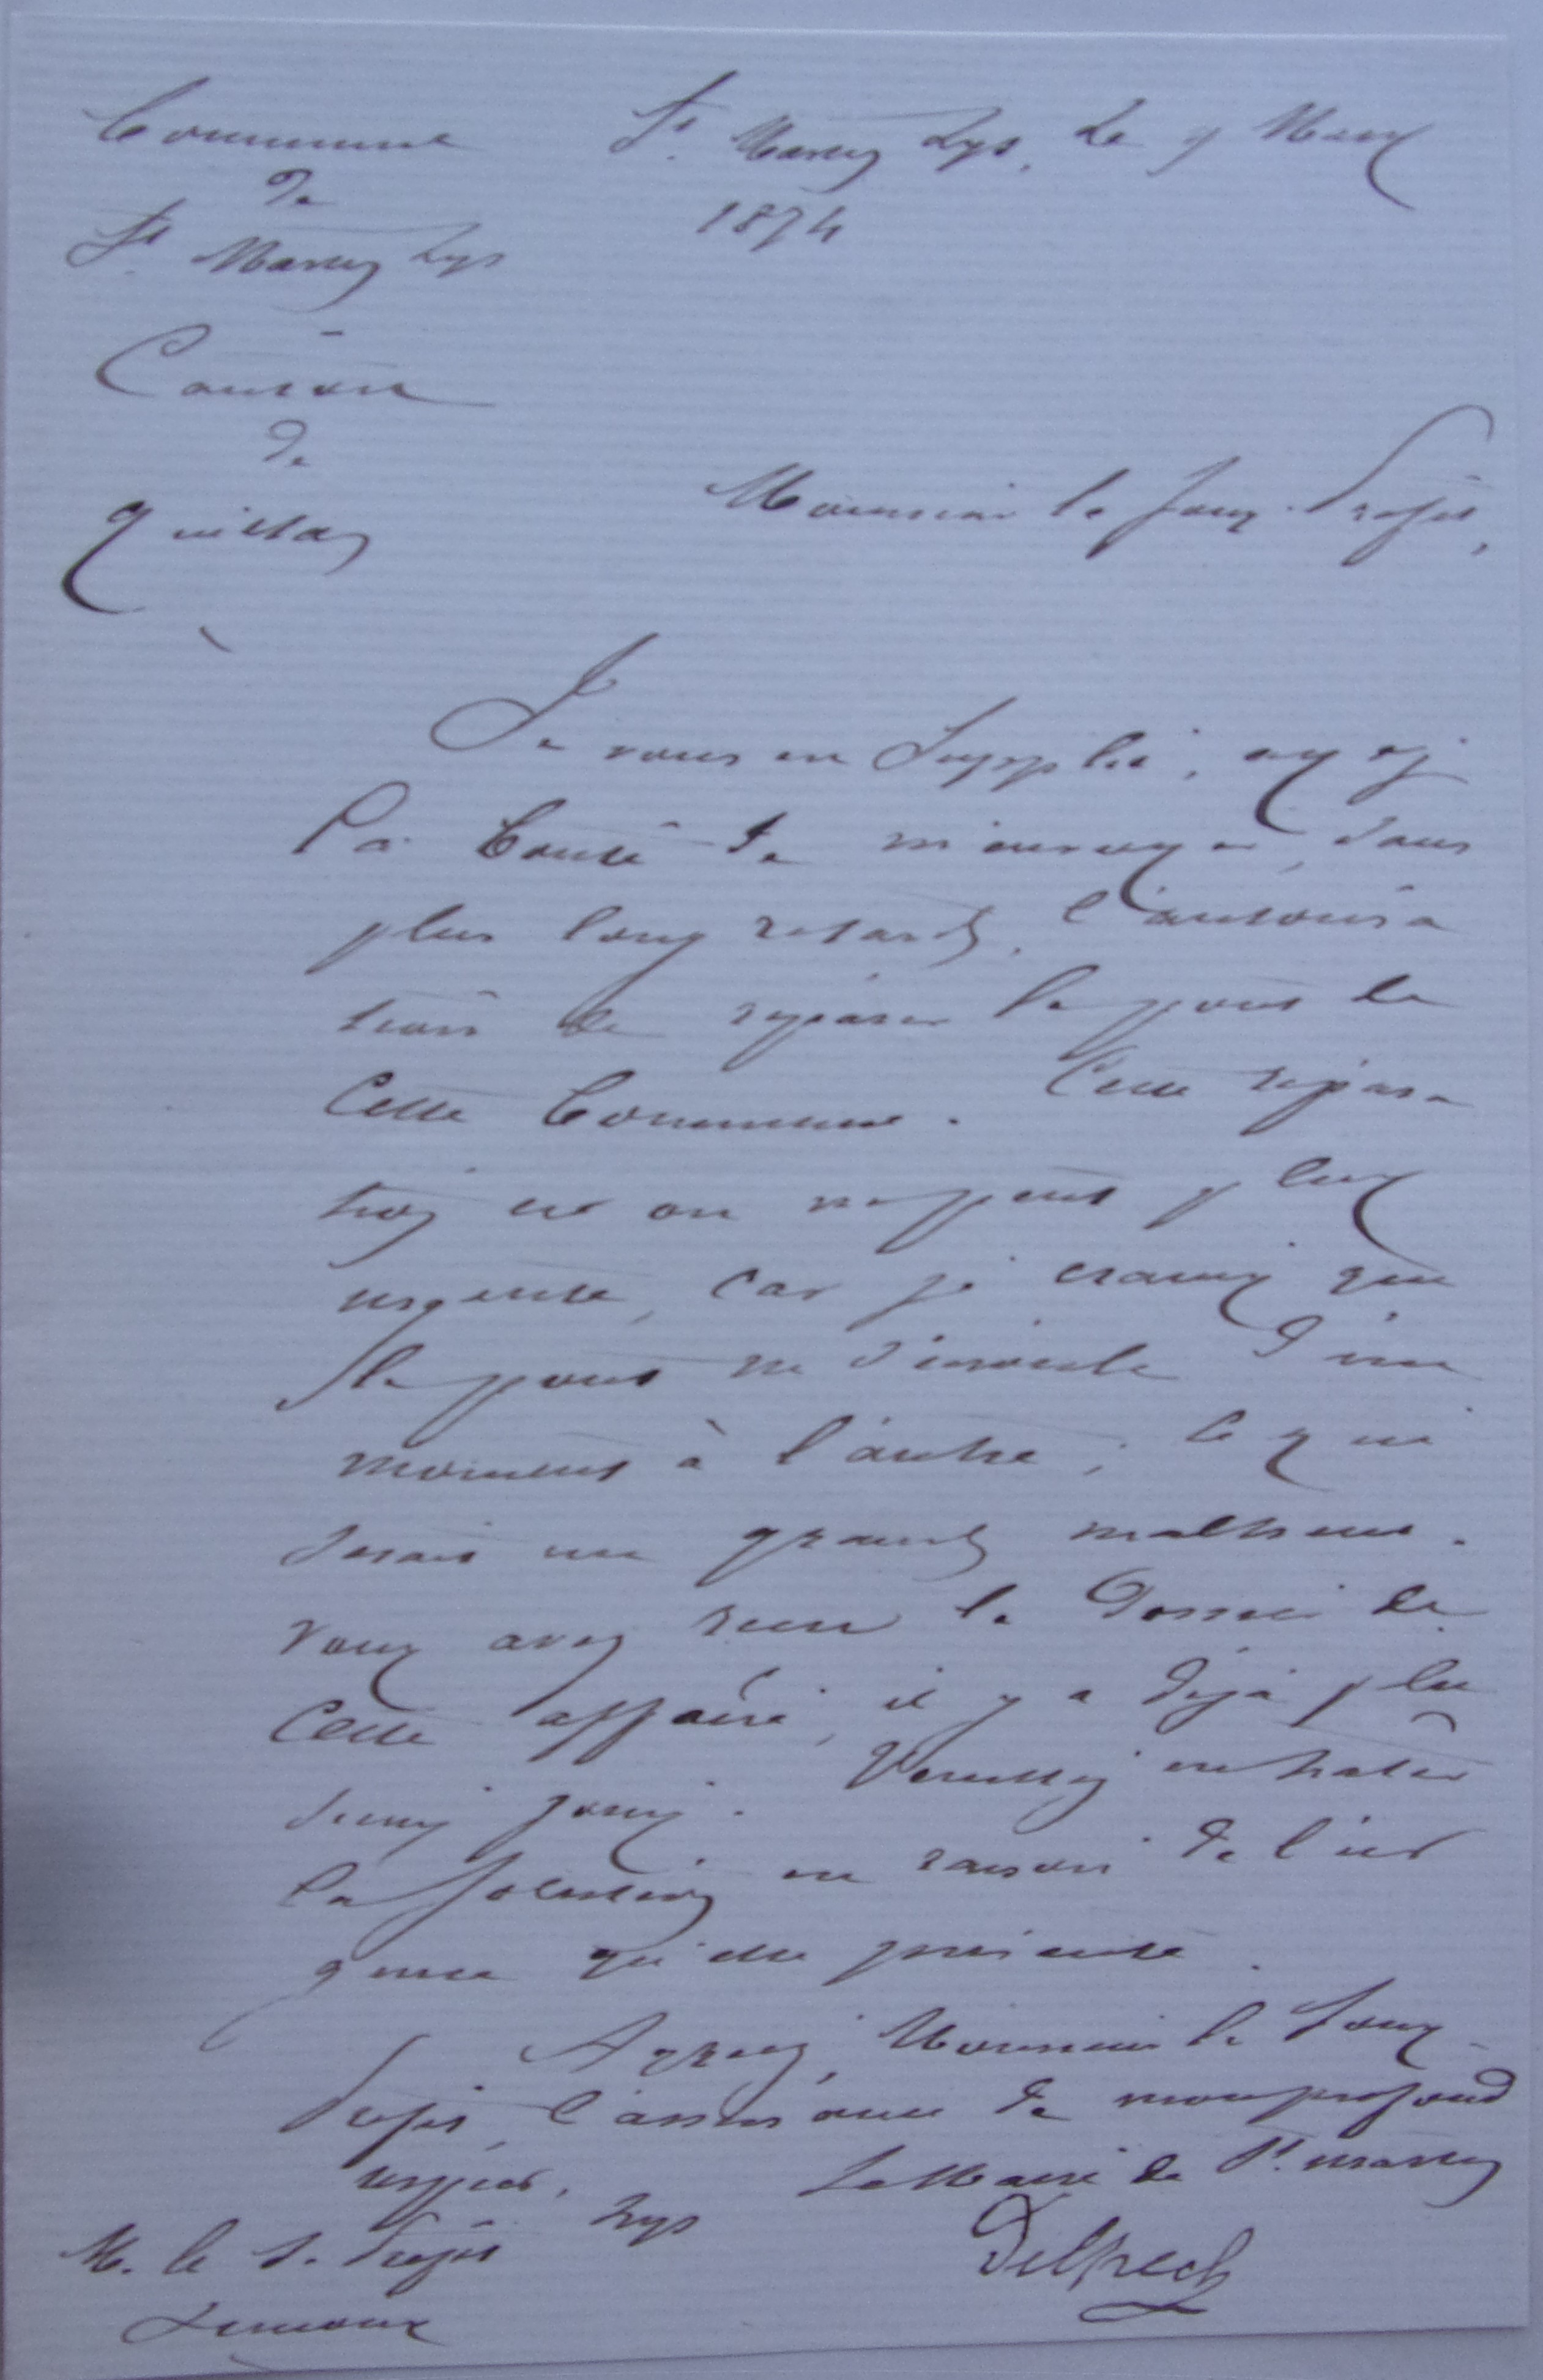 Commune
de
St Martin Lys
Canton
de
Quillan
St. Martin Lys, Le 9 Mars
1874
Monsieur le Sous-Préfet,
Je vous en Supplie, ayez
la bonté de m'envoyer, sans
plus long retard, l'autorisa
tion de réparer le pont de
Cette Commune. Cette répara
tion est on ne peut plus
urgente, car je crains que
le pont ne s'écroule d'un
moment à l'autre ; ce qui
serait un grand malheur.
Vous avez reçu le Dossier de
Cette affaire, il y a déjà plu
sieurs jours. Veuillez en hater
la solution en raison de l'ur
gence qu'elle présente.
Agréez, Monsieur le Sous-
Préfet, l'assurance de mon profond
respect.
Le Maire de St. Martin
Lys
Delpech
M. le S. Préfet
Limoux